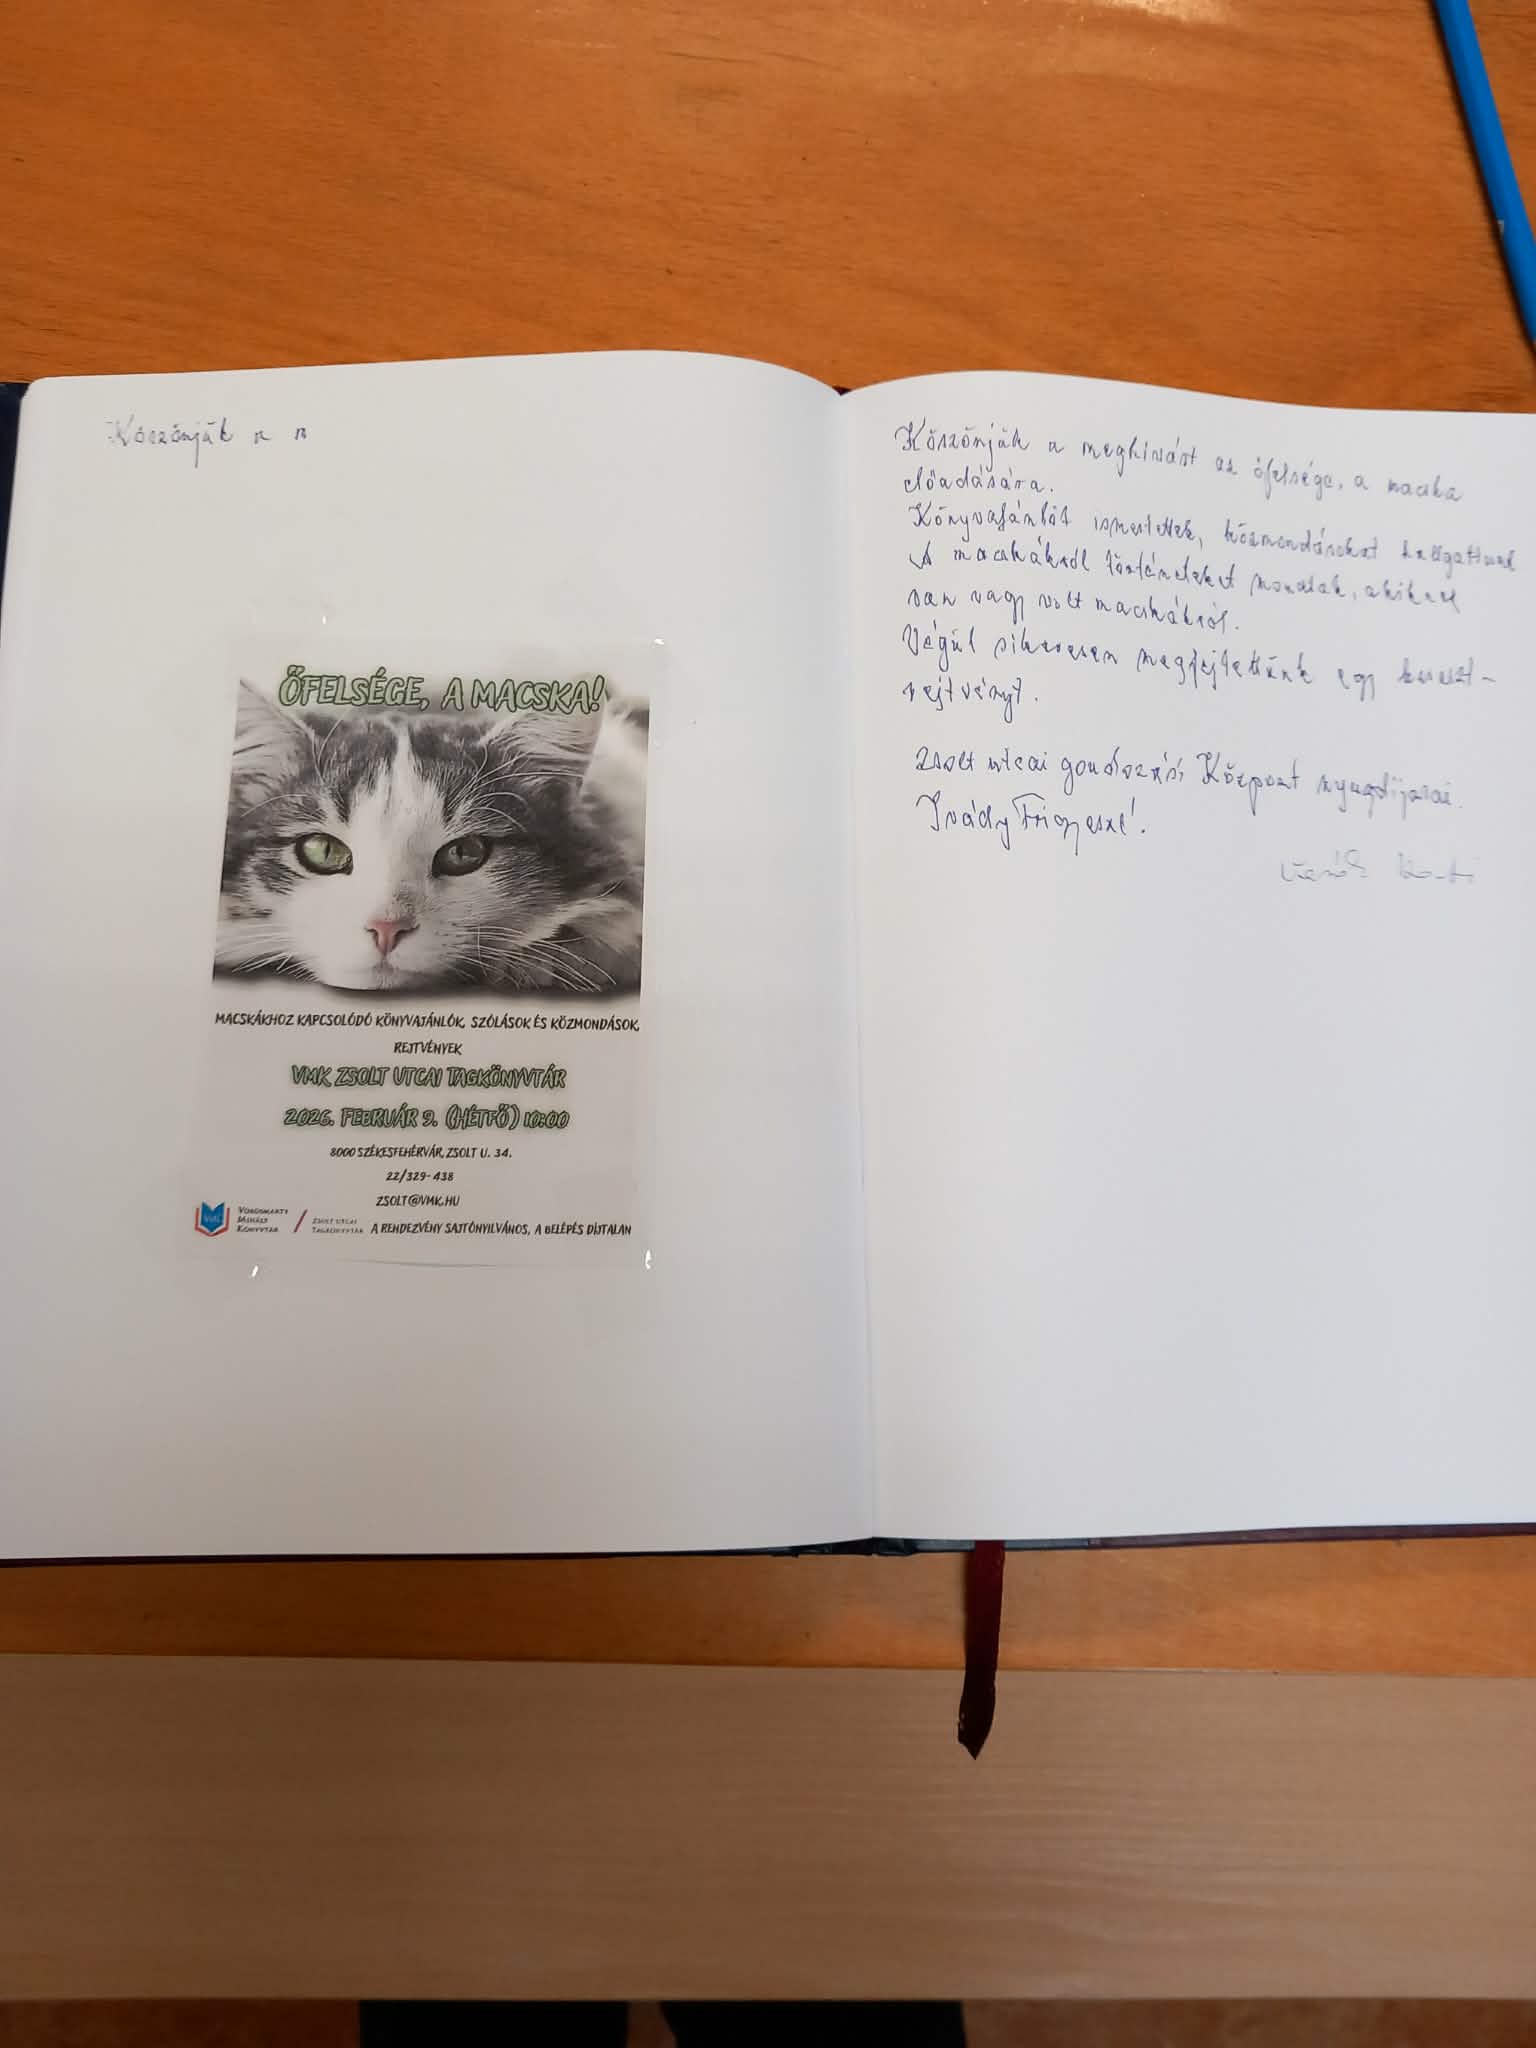 Köszönjük a m
ŐFELSÉGE, A MACSKA!
MACSKÁKHOZ KAPCSOLÓDÓ KÖNYVAJÁNLÓK, SZÓLÁSOK ÉS KÖZMONDÁSOK,
REJTVÉNYEK
VMK ZSOLT UTCAI TAGKÖNYVTÁR
2026. FEBRUÁR 9. (HÉTFŐ) 10:00
8000 SZÉKESFEHÉRVÁR, ZSOLT U. 34.
22/329-438
ZSOLT@VMK.HU
VÖRÖSMARTY
MIHÁLY
KÖNYVTÁR
ZSOLT UTCAI
TAGKÖNYVTÁR
A RENDEZVÉNY SAJTÓNYILVÁNOS, A BELÉPÉS DÍJTALAN
Köszönjük a meghívást az őfelsége, a macska
előadására.
Könyvajánlót ismertettek, közmondásokat hallgattunk
A macskákról történeteket mondtak, akiknek
van vagy volt macskákról.
Végül sikeresen megfejtettünk egy kereszt-
rejtvényt.
Zsolt utcai gondozási Központ nyugdíjasai.
Ivády Frigyesné.